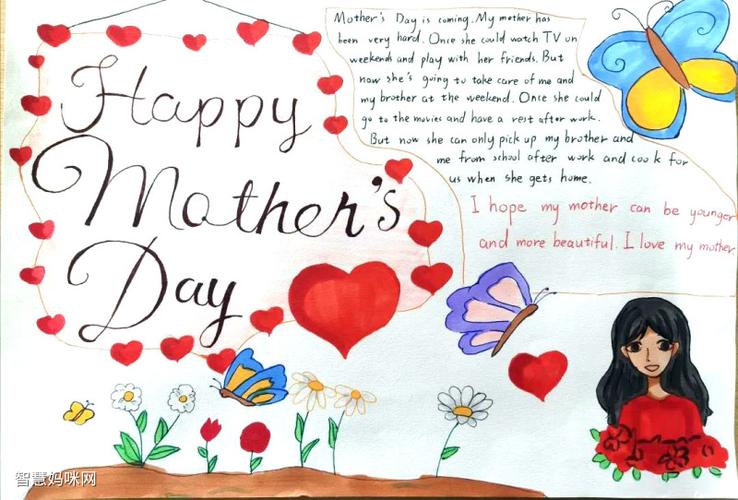 Happy
Mother's
Day
Mother's Day is coming. My mother has
been very hard. Once she could watch TV on
weekends and play with her friends. But
now she's going to take care of me and
my brother at the weekend. Once she could
go to the movies and have a rest after work.
But now she can only pick up my brother and
me from school after work and cook for
us when she gets home.
I hope my mother can be younger
and more beautiful. I love my mother
智慧妈咪网